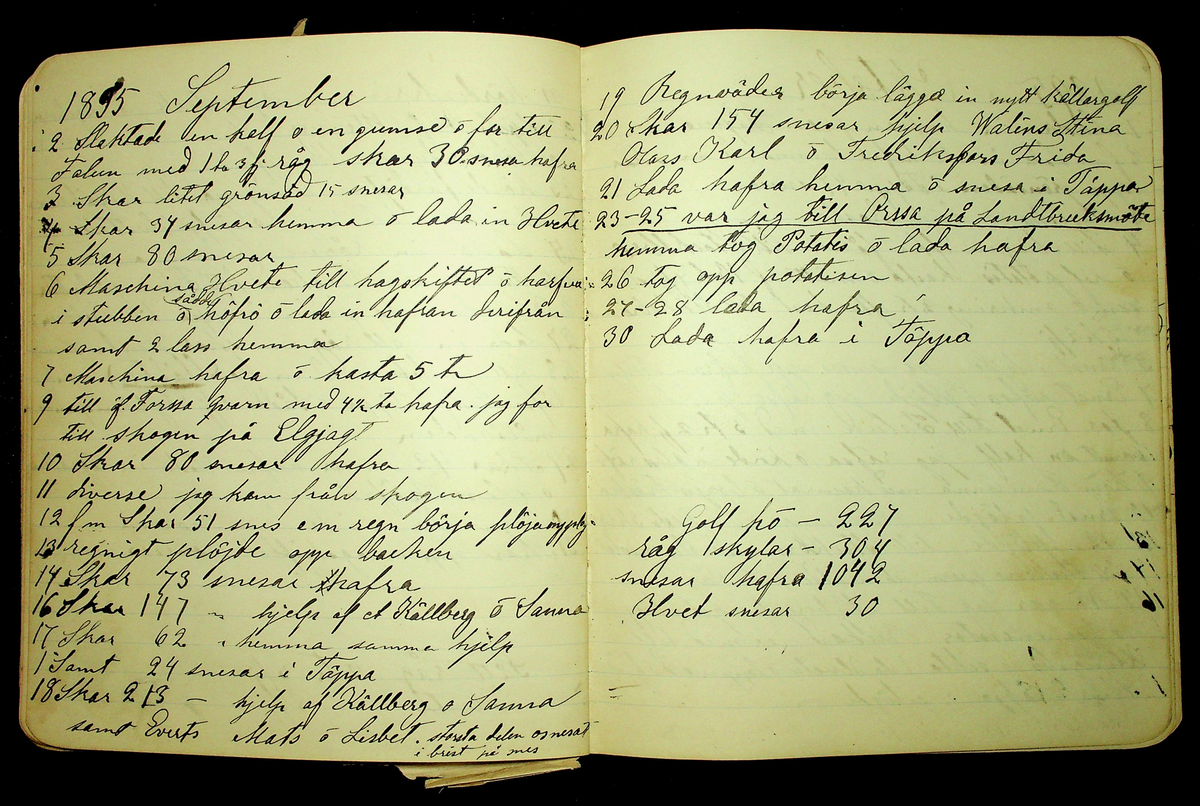 1895 September
2 Slaktade en kelf o en gumse ō for till
Falun med 1 ta 3 fj råg skar 30 snesa hafra
3 Skar litet grönsäd 15 snesar
4 Skar 34 snesar hemma ō lada in Hvete
5 Skar 80 snesar
6 Maschina Hvete till hagskiftet ō harfva
i stubben ō sådde höfrö ō lada in hafran
samt 2 lass hemma
7 Maschina hafra ō kasta 5 tr
9 till Forssa qvarn med 4½ ta hafra. jag for
till skogen på Elgjagt
10 Skar 80 snesar hafra
11 diverse jag kom från skogen
12 f.m Skar 51 snes em regn börja plöja
13 regnigt plöjde opp backen
14 Skar 73 snesar hafra
16 Skar 147 " hjelp af et Källberg ō Sanna
17 Skar 62 " hemma samma hjelp
Samt 24 snesar i Täppa
18 Skar 213 — hjelp af Källberg o Sanna
samt Everts Mats ō Lisbet. största delen osnesat
i brist på snes
19 Regnväder börja lägga in nytt källargolf
20 Skar 154 snesar hjelp Walins Stina
Olars Karl ō Fredriksfars Frida
21 Lada hafra hemma ō snesa i Täppa
23-25 var jag till Orssa på Landtbruksmöte
hemma tog Potatis ō lada hafra
26 tog opp potatisen
27-28 lada hafra
30 Lada hafra i Täppa
Golf hö — 227
råg skylar — 304
snesar hafra 1042
Hvet snesar 30